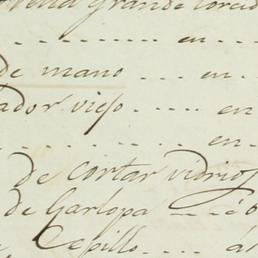 Grande torcid
en
de mano en
ador viejo en
en
de cortar vidrios
de Garlopa é 6
Cepillo ás